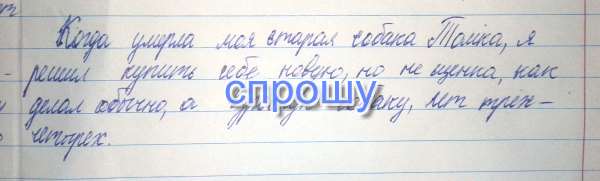 Когда умерла моя старая собака Томка, я
решил купить себе новую, но не щенка, как
делал обычно, а собаку, лет трех-
четырех.
спрошу